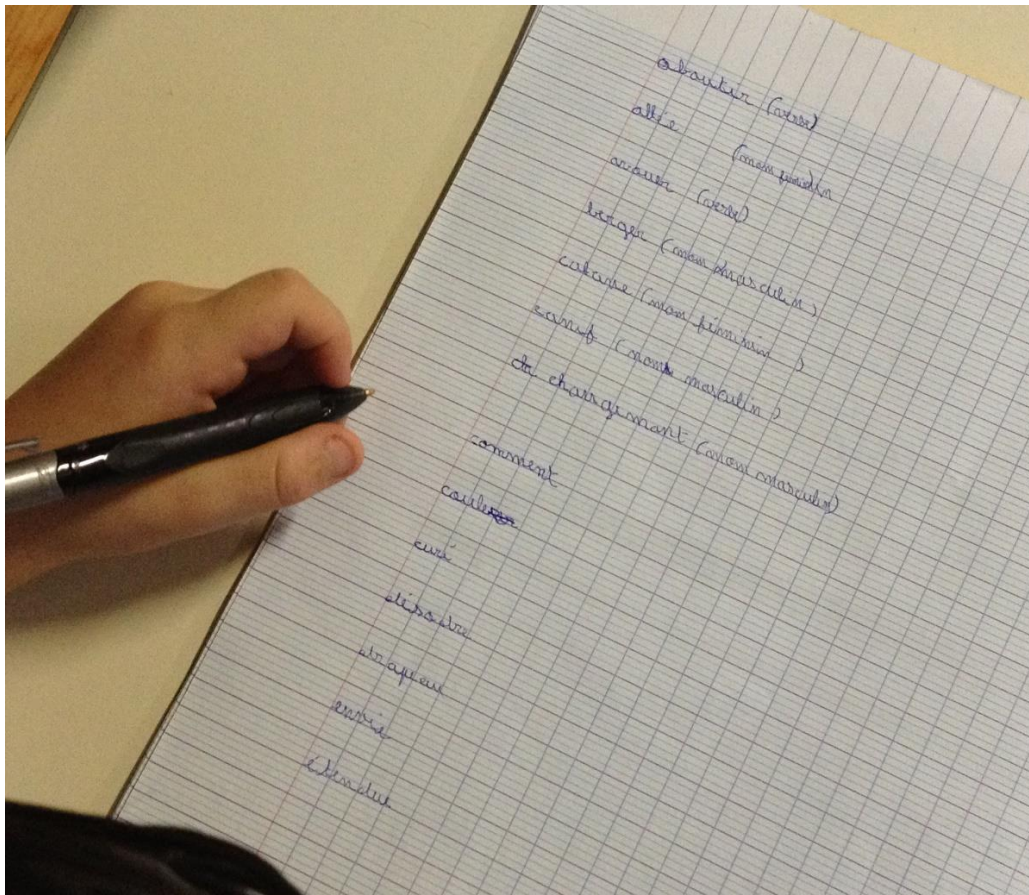 aboutir (verbe)
allée (nom féminin
avouer (verbe)
berger (nom masculin)
cabane (nom féminin)
canif (nom masculin)
changement (nom masculin)
comment
curé
désordre
drapeau
envie
étendue